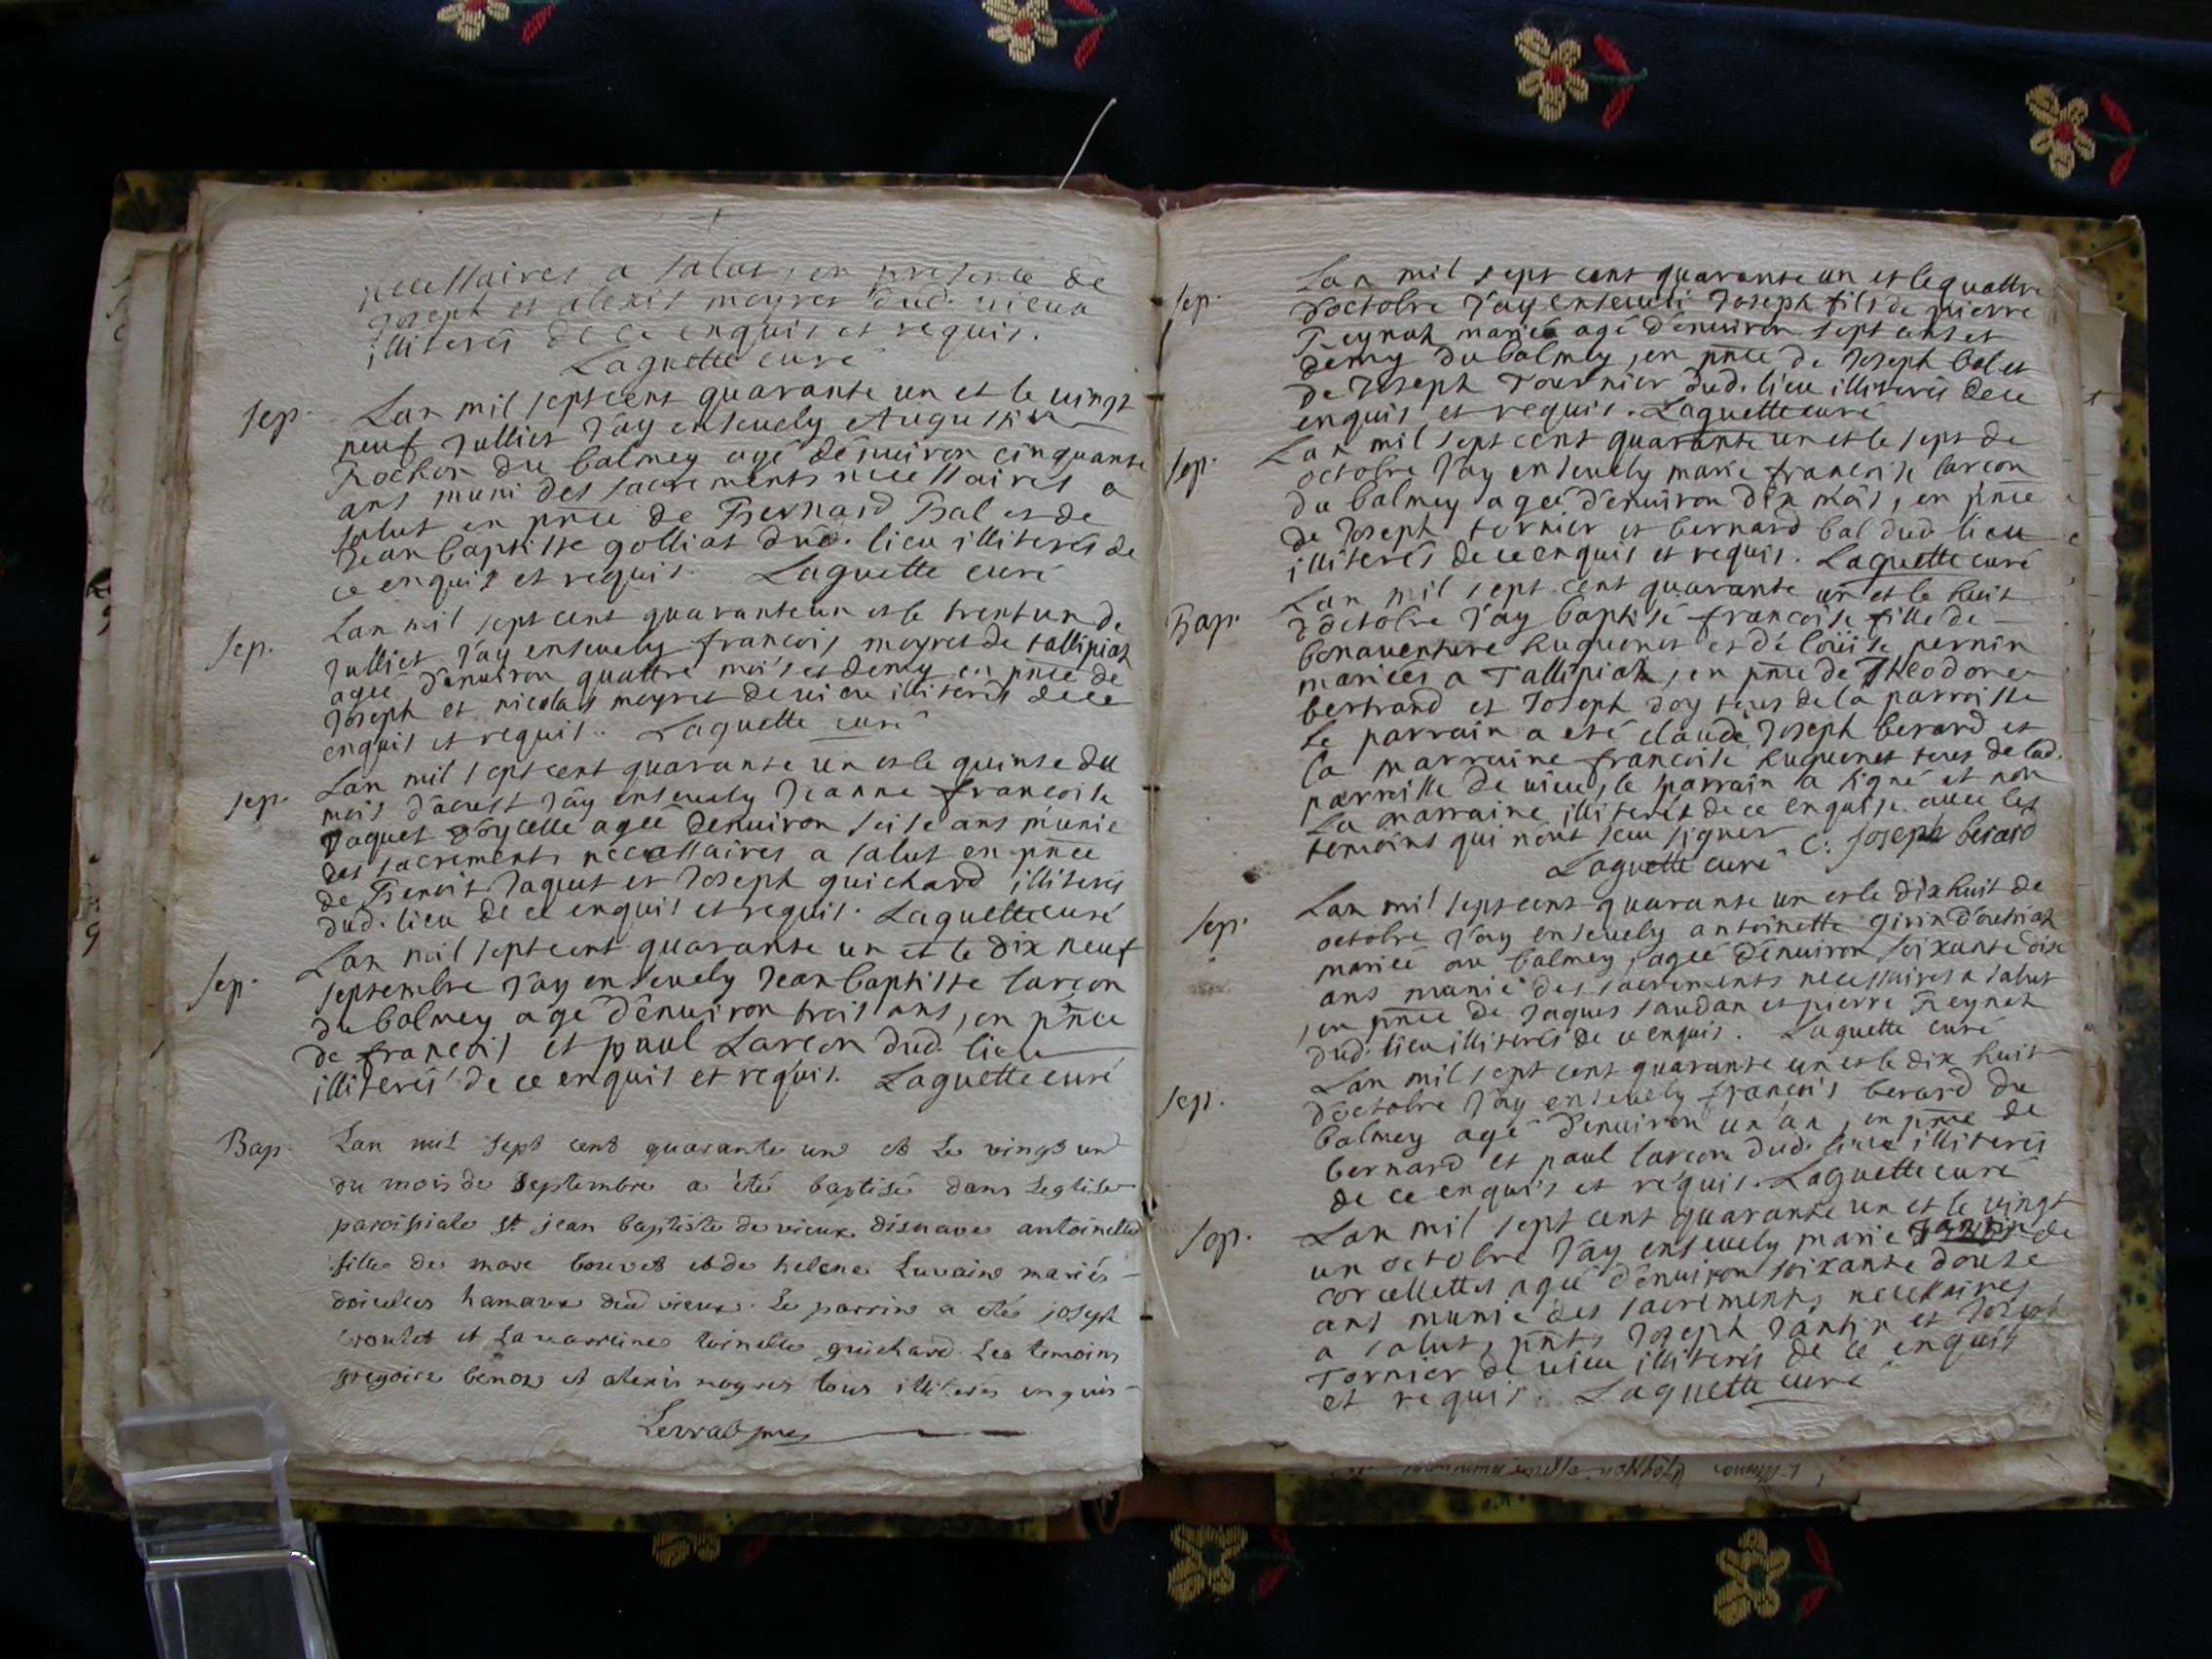 necessaires a salut, en presence de
Joseph et alexis moyret dud. vieux
illiterés de ce enquis et requis.
Laguette curé
sep.
Lan mil sept cent quarante un et le vingt
neuf Julliet J'ay ensevely Augustin
Rochon du balmey agé d'environ cinquante
ans muni des sacrements necessaires a
salut en pnce de Bernard Bal et de
Jean baptiste golliat dud. lieu illiterés de
ce enquis et requis. Laguette curé
sep.
Lan mil sept cent quarante un et le trent un de
Julliet J'ay ensevely francois moyret de tallipiat
agée d'environ quattre mois et demy en pnce de
Joseph et nicolas moyret de vieu illiterés de ce
enquis et requis. Laguette curé
sep.
Lan mil sept cent quarante un et le quinse du
mois d'aoust J'ay ensevely Jeanne francoise
Jaquet d'oycelle agée d'environ seise ans munie
des sacrements necessaires a salut en pnce
de Benoit Jaquet et Joseph guichard illiterés
dud. lieu de ce enquis et requis. Laguette curé
sep.
Lan mil sept cent quarante un et le dix neuf
septembre J'ay ensevely Jean baptiste larçon
du balmey agé d'environ trois ans, en pnce
de francois et paul Larcon dud. lieu
illiterés de ce enquis et requis. Laguette curé
Bap.
Lan mil sept cent quarante un et Le vingt un
du mois de Septembre a été baptisé dans Leglise
paroissiale st jean baptiste de vieux disnave antoinette
fille de marc bouvet et de helene Luvain mariés
doicelles hamaux dud vieux. Le parrin a été joseph
croulet et La marreine toinette guichard. Les temoins
gregoire benoz et alexis moyret tous illiterés enquis
sep.
Lan mil sept cent quarante un et le quattre
d'octobre J'ay enseveli Joseph fils de pierre
Reynat mariée agé d'environ sept ans et
demy du balmey, en pnce de Joseph bal et
de Joseph Tournier dud. lieu illiterés de ce
enquis et requis. Laguette curé
sep.
Lan mil sept cent quarante un et le sept de
octobre J'ay ensevely marie francoise larcon
du balmey agée d'environ dix mois, en pnce
de Joseph tornier et bernard bal dud lieu
illiterés de ce enquis et requis. Laguette curé
Bap.
Lan mil sept cent quarante un et le huit
d'octobre J'ay baptisé francoise fille de
bonaventure huguenet et de loüise pernin
mariées a Tallipiat, en pnce de Theodore
bertrand et Joseph doy tous de la parroisse
le parrain a eté claude Joseph berard et
la marraine francoise huguenet tous de lad.
parroisse de vieu, le parrain a signé et non
la marraine illiterés de ce enquise avec les
temoins qui n'ont sceu signer C: Joseph berard
Laguette curé
sep.
Lan mil sept cent quarante un et le dix huit de
octobre J'ay ensevely antoinette girin d'outriat
mariée au balmey, agée d'environ soixante dise
ans munie des sacrements necessaires a salut
, en pnce de Jaques saudan et pierre Reynat
dud. lieu illiterés de ce enquis. Laguette curé
sep.
Lan mil sept cent quarante un et le dix huit
d'octobre J'ay ensevely francois berard du
balmey agé d'environ un an, en pnce de
bernard et paul larcon dud. lieu illiterés
de ce enquis et requis. Laguette curé
sep.
Lan mil sept cent quarante un et le vingt
un octobre J'ay ensevely marie Jantin de
corcellettes agée d'environ soixante douse
ans munie des sacrements necessaires
a salut, pnts Joseph Jantin et Joseph
Tornier de vieu illiterés de ce enquis
et requis. Laguette curé